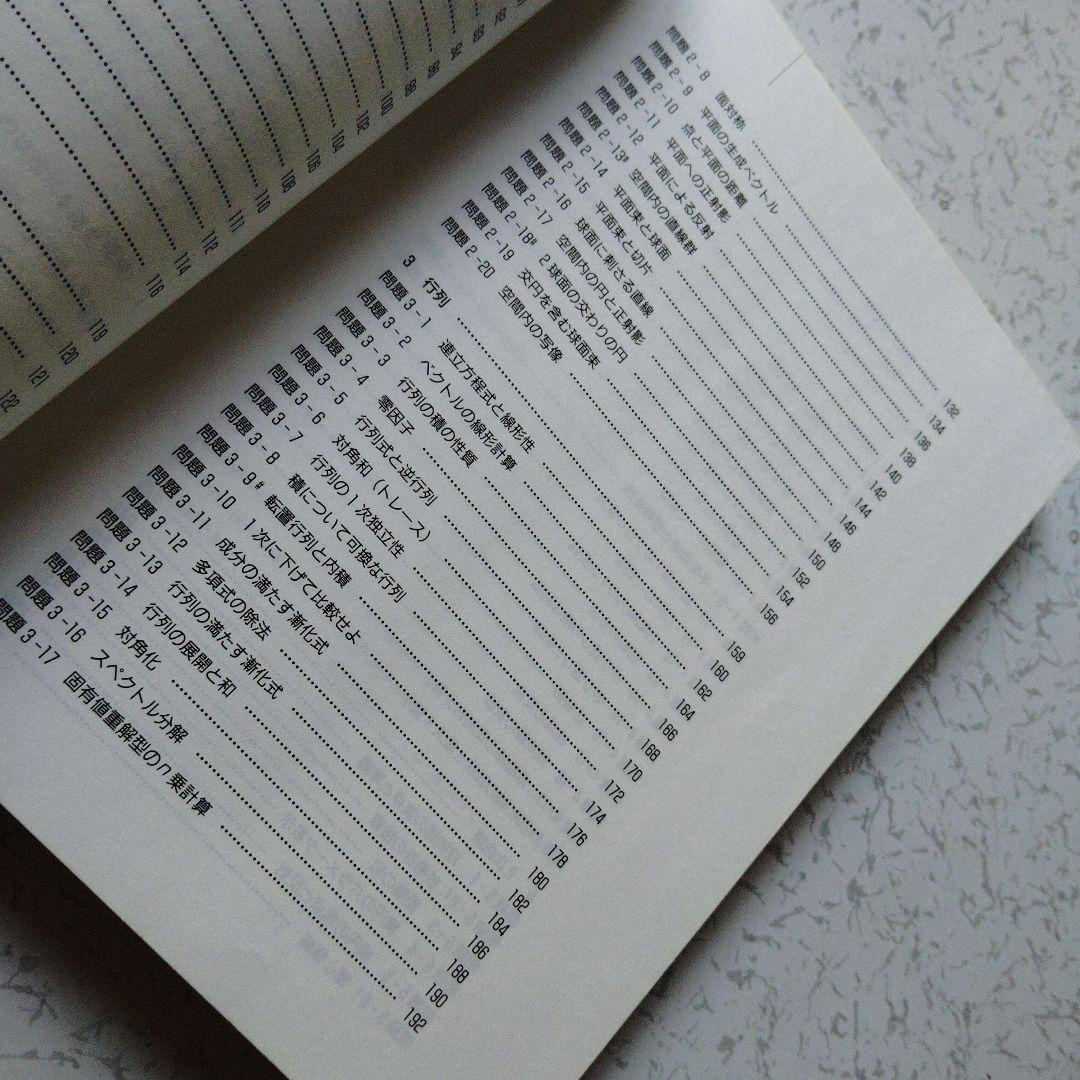 93
94
96
98
100
102
104
106
108
110
111
112
114
116
119
120
121
122
問題2-8 面対称 132
問題2-9 平面の生成ベクトル 134
問題2-10 点と平面の距離 136
問題2-11 平面への正射影 138
問題2-12 平面による反射 140
問題2-13# 空間内の直線群 142
問題2-14 平面束と球面 144
問題2-15 平面束と切片 146
問題2-16 球面に刺さる直線 148
問題2-17 空間内の円と正射影 150
問題2-18# 2球面の交わりの円 152
問題2-19 交円を含む球面束 154
問題2-20 空間内の写像 156
3 行列 159
問題3-1 連立方程式と線形性 160
問題3-2 ベクトルの線形計算 162
問題3-3 行列の積の性質 164
問題3-4 零因子 166
問題3-5 行列式と逆行列 168
問題3-6 対角和（トレース） 170
問題3-7 行列の1次独立性 172
問題3-8 積について可換な行列 174
問題3-9# 転置行列と内積 176
問題3-10 1次に下げて比較せよ 178
問題3-11 成分の満たす漸化式 180
問題3-12 多項式の除法 182
問題3-13 行列の満たす漸化式 184
問題3-14 行列の展開と和 186
問題3-15 対角化 188
問題3-16 スペクトル分解 190
問題3-17 固有値重解型のn乗計算 192